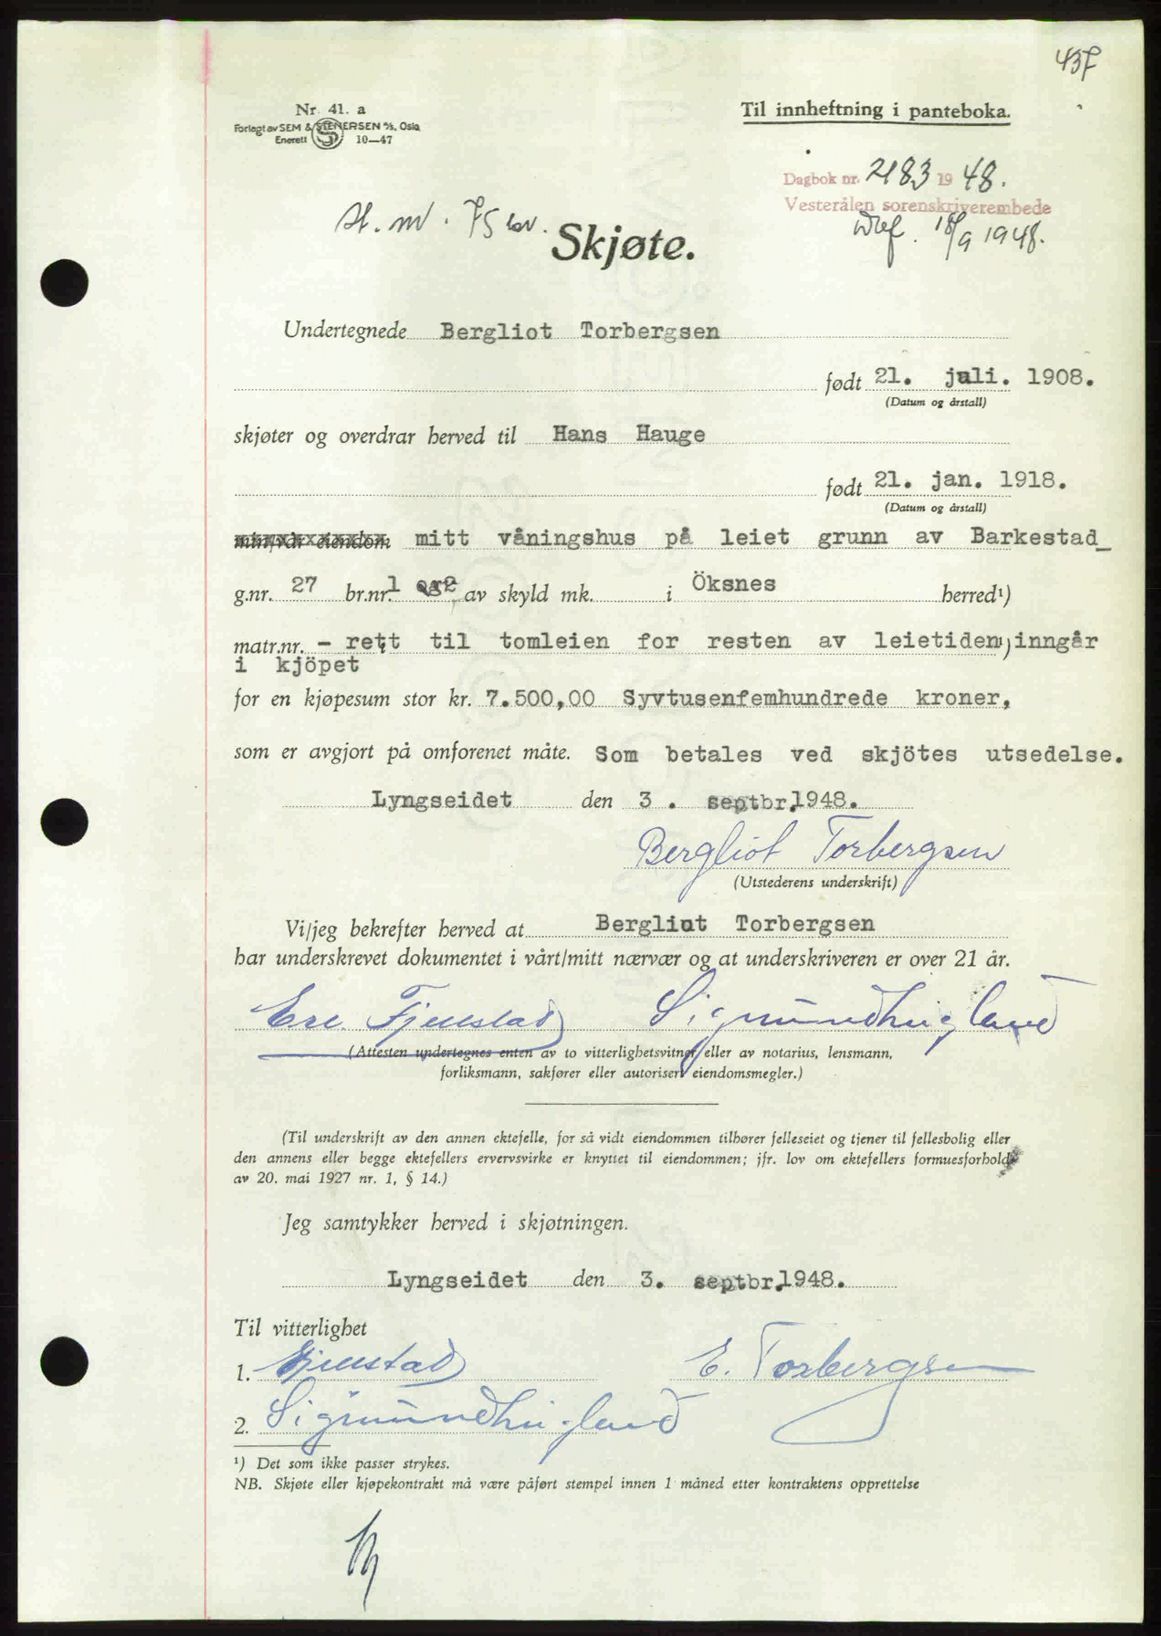 437
Nr. 41. a
Forlagt av SEM & STENERSEN A/S, Oslo
Enerett 10—47
Til innheftning i panteboka.
Dagbok nr. 2183 1948.
Vesterålen sorenskriverembede
18/9 1948.
St. m. 75 kr.
Skjøte.
Undertegnede Bergliot Torbergsen
født 21. juli. 1908.
(Datum og årstall)
skjøter og overdrar herved til Hans Hauge
født 21. jan. 1918.
(Datum og årstall)
min/vår eiendom mitt våningshus på leiet grunn av Barkestad_
g.nr. 27 br.nr. 1 og2 av skyld mk. i Öksnes herred¹)
matr.nr. - rett til tomleien for resten av leietiden¹) inngår
i kjöpet
for en kjøpesum stor kr. 7.500,00 Syvtusenfemhundrede kroner,
som er avgjort på omforenet måte. Som betales ved skjötes utsedelse.
Lyngseidet den 3 . septbr.1948.
Bergliot Torbergsen
(Utstederens underskrift)
Vi/jeg bekrefter herved at Bergliot Torbergsen
har underskrevet dokumentet i vårt/mitt nærvær og at underskriveren er over 21 år.
Fjellstad Sigmund
(Attesten undertegnes enten av to vitterlighetsvitner eller av notarius, lensmann,
forliksmann, sakfører eller autorisert eiendomsmegler.)
(Til underskrift av den annen ektefelle, for så vidt eiendommen tilhører felleseiet og tjener til fellesbolig eller
den annens eller begge ektefellers ervervsvirke er knyttet til eiendommen; jfr. lov om ektefellers formuesforhold
av 20. mai 1927 nr. 1, § 14.)
Jeg samtykker herved i skjøtningen.
Lyngseidet den 3. septbr.1948.
Til vitterlighet
1. Fjellstad E. Torbergsen
2. Sigmund
¹) Det som ikke passer strykes.
NB. Skjøte eller kjøpekontrakt må være påført stempel innen 1 måned etter kontraktens opprettelse